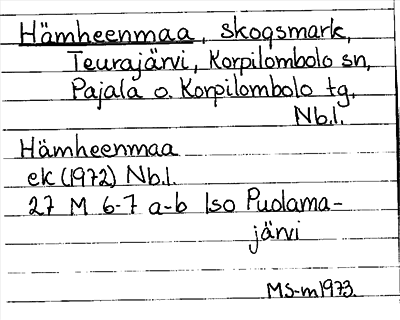 Hämheenmaa, skogsmark,
Teurajärvi, Korpilombolo sn,
Pajala o. Korpilombolo tg,
Nb.l.
Hämheenmaa
ek (1972) Nb.l.
27 M 6-7 a-b Iso Puolama-
järvi
MS-m 1973.